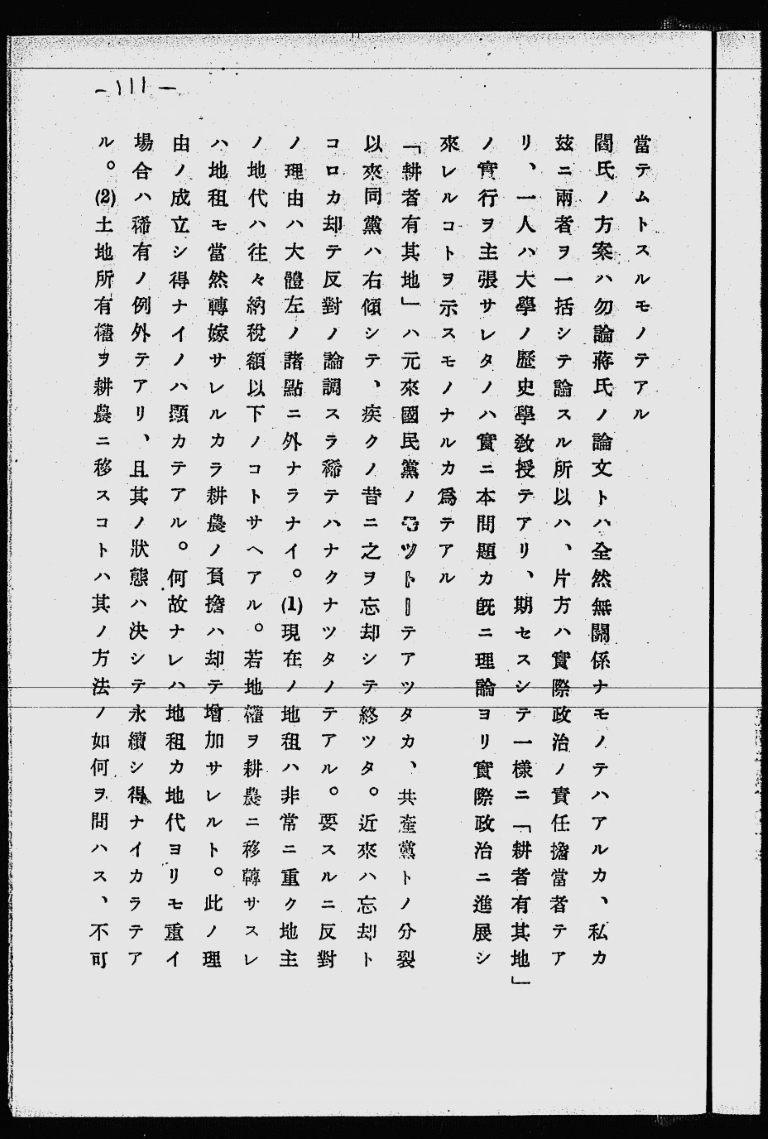 -111-
當テムトスルモノテアル
閻氏ノ方案ハ勿論蔣氏ノ論文トハ全然無關係ナモノテハアルカ、私カ
玆ニ兩者ヲ一括シテ論スル所以ハ、片方ハ實際政治ノ責任擔當者テア
リ、一人ハ大學ノ歷史學敎授テアリ、期セスシテ一樣ニ「耕者有其地」
ノ實行ヲ主張サレタノハ實ニ本問題カ旣ニ理論ヨリ實際政治ニ進展シ
來レルコトヲ示スモノナルカ爲テアル
「耕者有其地」ハ元來國民黨ノモツトーテアツタカ、共產黨トノ分裂
以來同黨ハ右傾シテ、疾クノ昔ニ之ヲ忘却シテ終ツタ。近來ハ忘却ト
コロカ却テ反對ノ論調スラ稀テハナクナツタノテアル。要スルニ反對
ノ理由ハ大體左ノ諸點ニ外ナラナイ。(1)現在ノ地租ハ非常ニ重ク地主
ノ地代ハ往々納稅額以下ノコトサヘアル。若地權ヲ耕農ニ移轉サスレ
ハ地租モ當然轉嫁サレルカラ耕農ノ負擔ハ却テ增加サレルト。此ノ理
由ノ成立シ得ナイノハ顯カテアル。何故ナレハ地租カ地代ヨリモ重イ
場合ハ稀有ノ例外テアリ、且其ノ狀態ハ決シテ永續シ得ナイカラテア
ル。(2)土地所有權ヲ耕農ニ移スコトハ其ノ方法ノ如何ヲ問ハス、不可